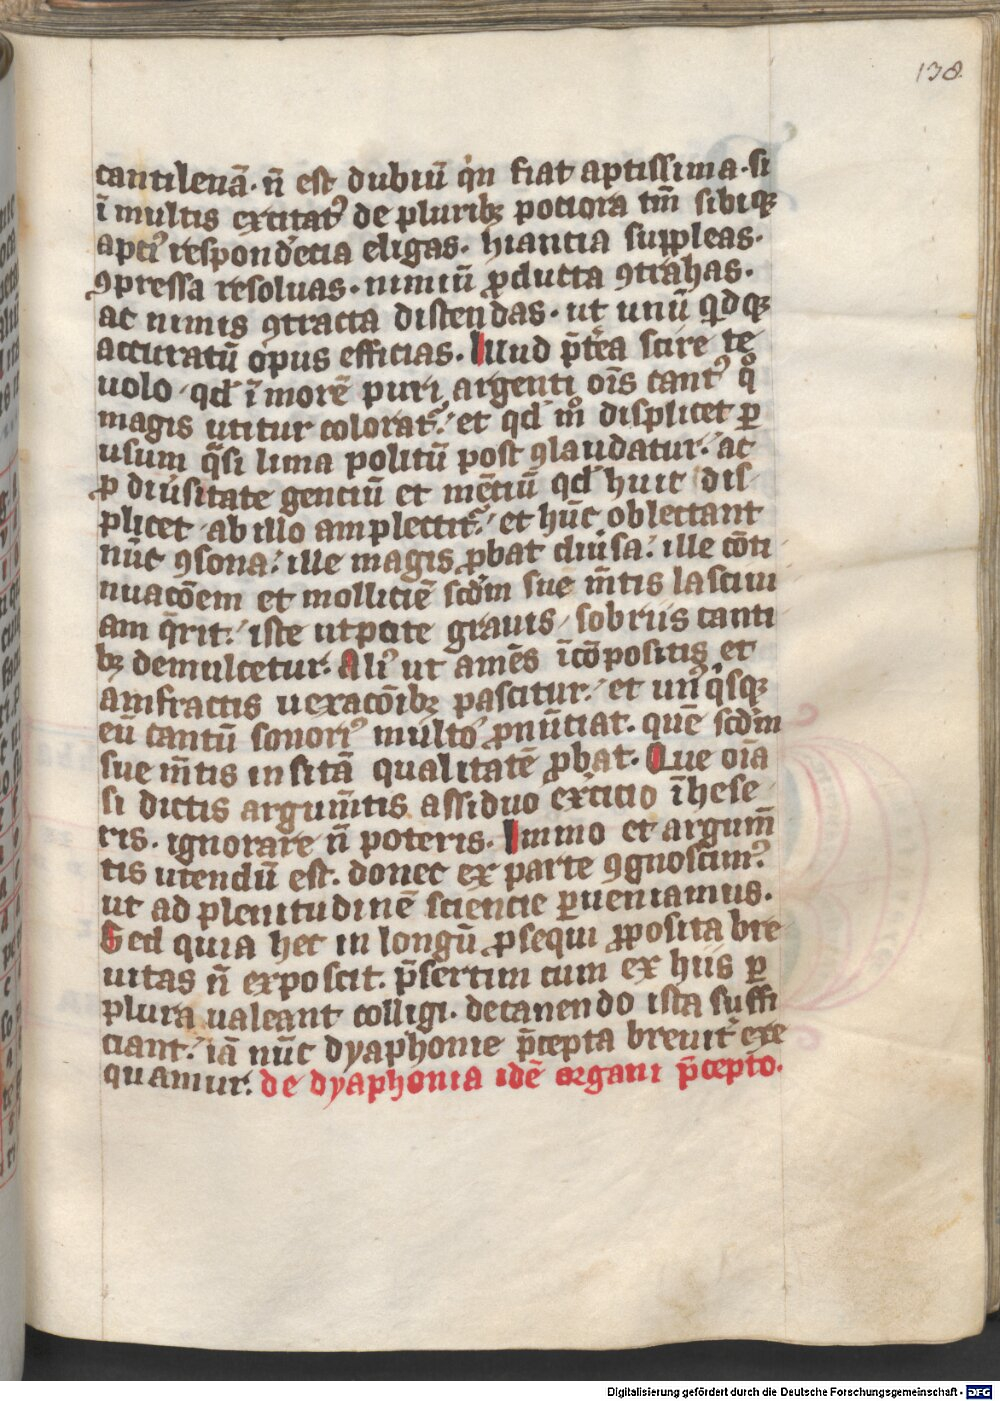 138
cantilenā· n̄ est dubiū qͥn fiat aptissima· si
ī multis excitatꝰ de pluribꝫ pociora tm̄ sibiqꝫ
aptiꝰ respondēcia eligas· hiantia suppleas·
ꝯpressa resoluas· nimiū ꝓducta ꝯtrahas·
ac nimis ꝯtracta distendas· ut unū qdqꝫ
accuratū opus efficias· Illud p̄tēa scire te
uolo qd̓ ī morē puri argenti oīs cantꝰ qͦ
magis utitur coloratᷣ: et qd̓ mͦ displicet ꝑ
usum qͣsi lima politū post ꝯlaudatur: ac
ꝑ diūsitate genciū et mēciū qd̓ huic dis-
plicet ab illo amplectitᷣ: et hūc oblectant
nūc ꝯsona: ille magis ꝓbat diūsa: ille cōti
nuacōem et molliciē scd̄m sue m̄tis lasciui
am q̄rit: iste utpote grauis sobriis canti
bꝫ demulcetur· Aliꝰ ut amēs īcōpositis et
amfractis uexacōibꝫ pascitur: et unꝰqͥsqꝫ
eū cantū sonoriꝰ multo ꝓnūciat· quē scd̄m
sue m̄tis insitā qualitatē ꝓbat· Que oīa
si dictis argum̄tis assiduo ex̄citio īhese
ris· ignorare n̄ poteris· Immo et argum̄
tis utendū est· donec ex parte ꝯgnoscimꝰ:
ut ad plenitudinē sciencie ꝑueniamus·
Sed quia hec in longū ꝓsequi ꝓposita bre
uitas n̄ exposcit· p̄sertim cum ex hiis ꝑ
plura ualeant colligi· de canendo ista suffi
ciant: iā nūc dyaphonie p̄cepta breuit̄ exe
quamur: de dyaphonia idē organi p̄cepto·
Digitalisierung gefördert durch die Deutsche Forschungsgemeinschaft - DFG